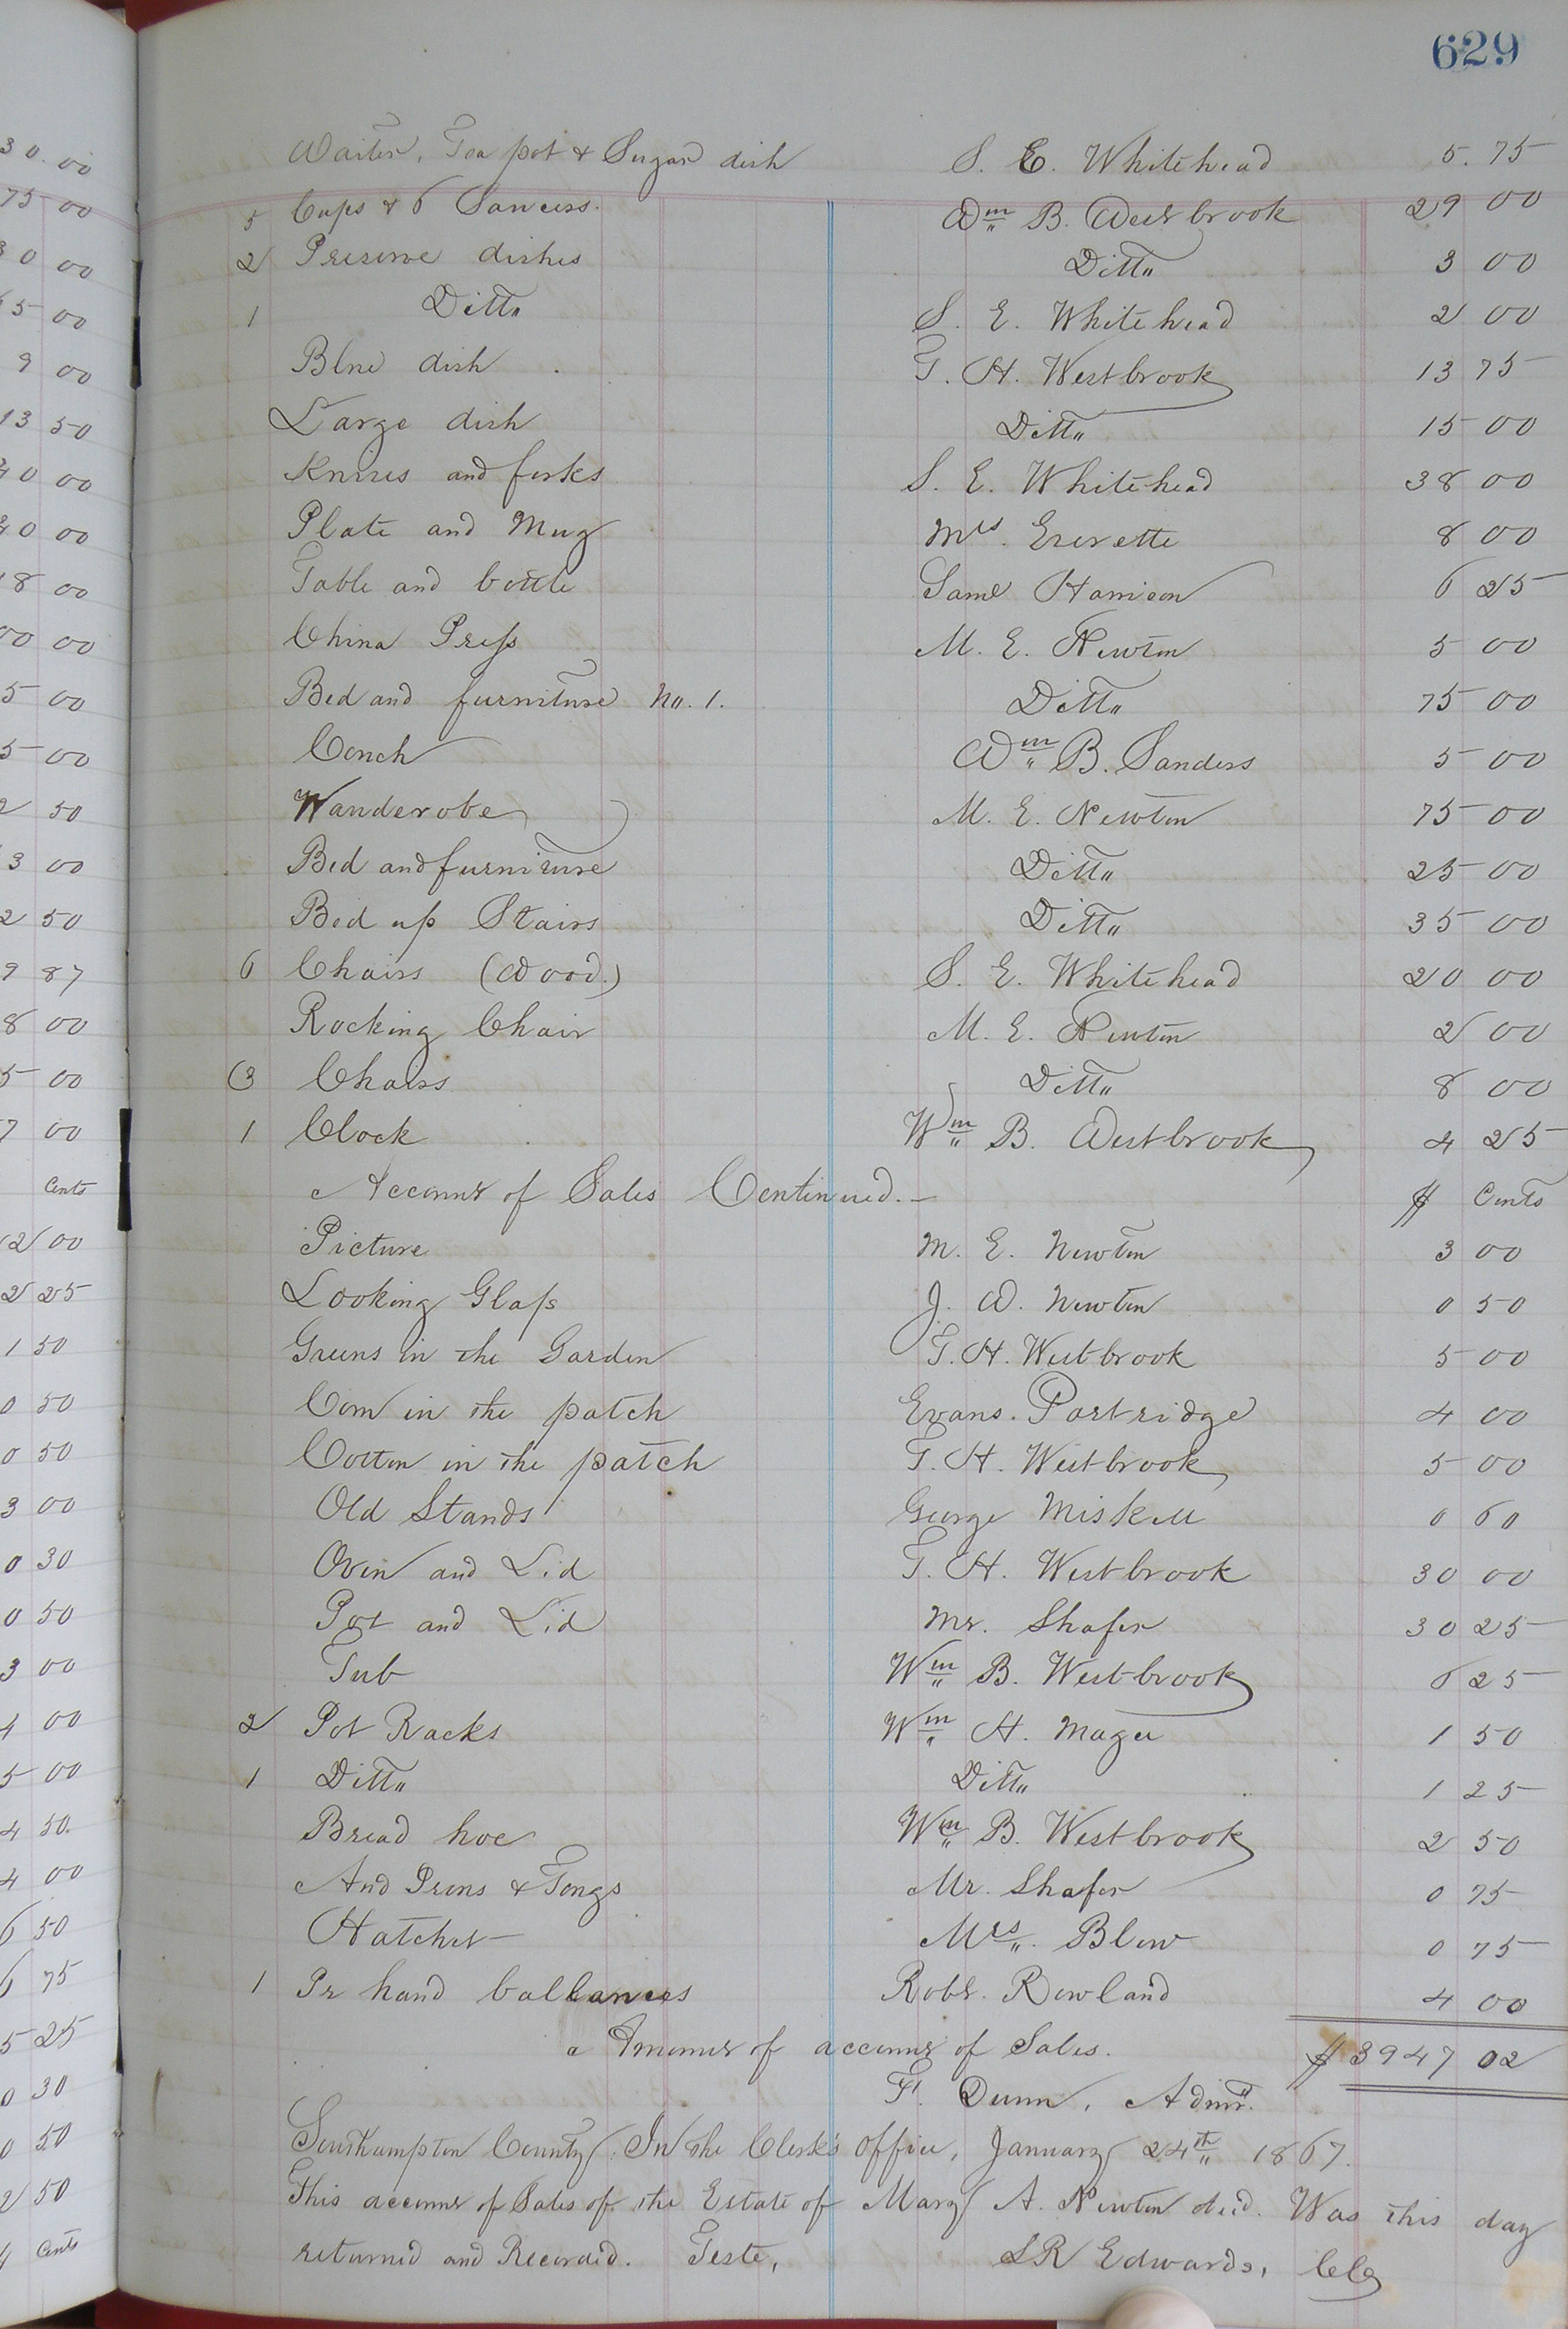 629
Waiter, Tea pot & Sugar dish S. E. Whitehead 5.75
5 Cups & 6 Saucers. Wm B. Westbrook 29 00
2 Preserve dishes Ditto 3 00
1 Ditto S. E. Whitehead 2 00
Blue dish T. H. Westbrook 13 75
Large dish Ditto 15 00
Knives and forks S. E. Whitehead 38 00
Plate and Mug Mrs. Everette 8 00
Table and bottle Saml Harrison 6 25
China Press M. E. Newton 5 00
Bed and furniture No. 1. Ditto 75 00
Couch Wm B. Sanders 5 00
Wanderobe M. E. Newton 75 00
Bed and furniture Ditto 25 00
Bed up Stairs Ditto 35 00
6 Chairs (Wood.) S. E. Whitehead 20 00
Rocking Chair M. E. Newton 2 00
3 Chairs Ditto 8 00
1 Clock Wm B. Westbrook 4 25
Account of Sales Continued.— $ Cents
Picture M. E. Newton 3 00
Looking Glass J. W. Newton 0 50
Greens in the Garden T. H. Westbrook 5 00
Corn in the patch Evans. Partridge 4 00
Cotton in the patch T. H. Westbrook 5 00
Old Stands George Miskell 0 60
Oven and Lid T. H. Westbrook 30 00
Pot and Lid Mr. Shafer 30 25
Tub Wm B. Westbrook 6 25
2 Pot Racks Wm H. Magee 1 50
1 Ditto Ditto 1 25
Bread hoe Wm B. Westbrook 2 50
And Irons & Tongs Mr. Shafer 0 75
Hatchet Mrs. Blow 0 75
1 Pr hand ballances Robt. Rowland 4 00
Amount of account of Sales. $3947 02
F. Dunn, Admr.
Southampton County. In the Clerk's office, January 24th 1867.
This account of Sales of the Estate of Mary A. Newton decd. Was this day
returned and Recorded. Teste, LR Edwards, Clk